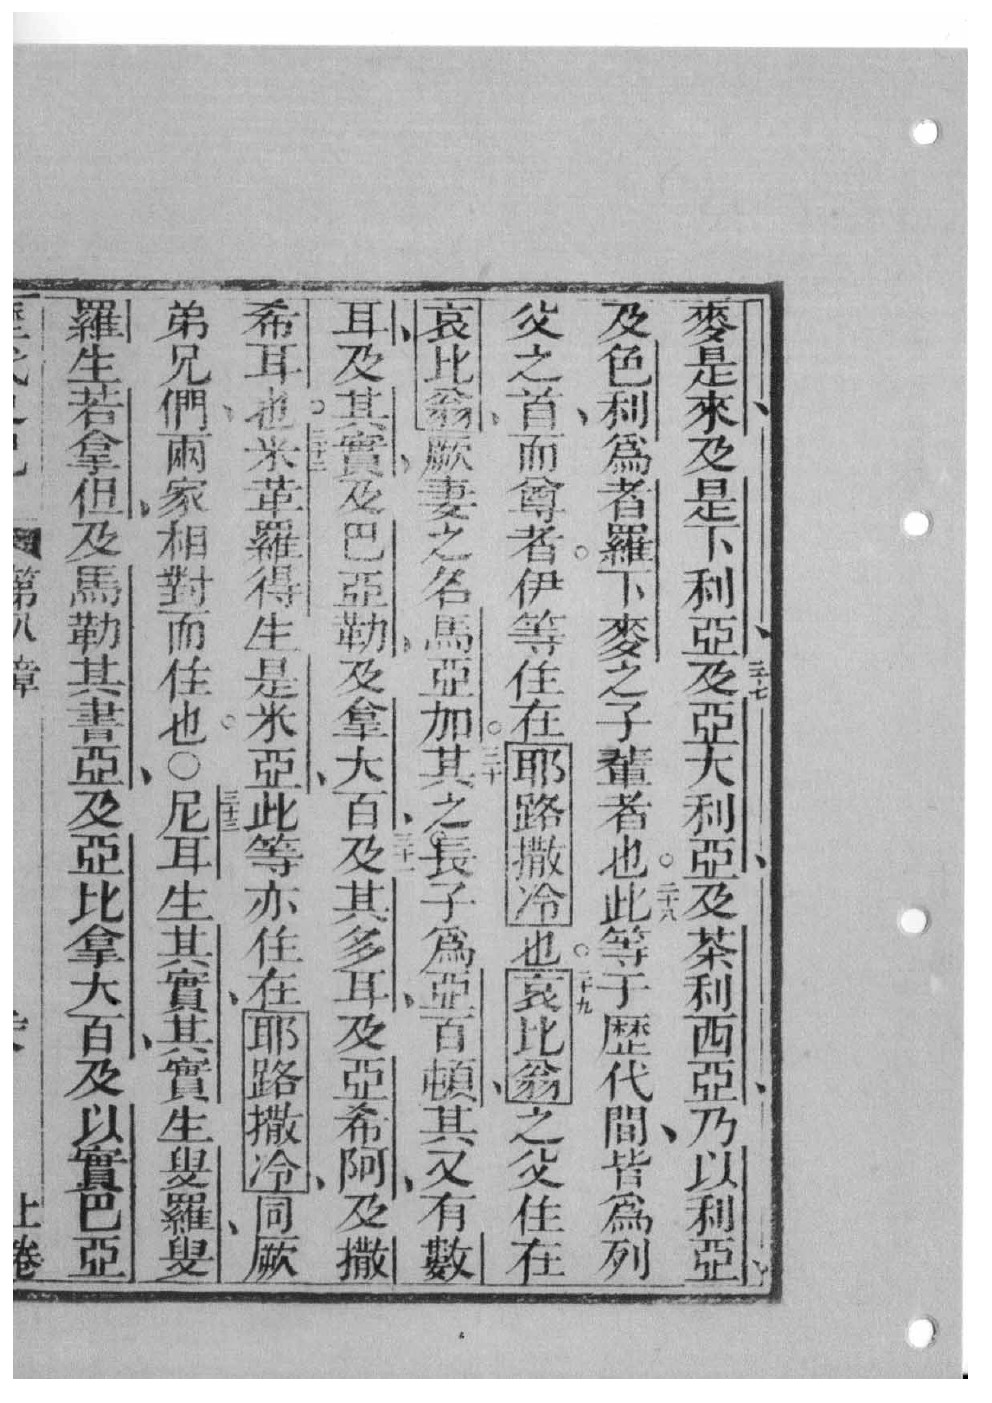 麥是來及是下利亞及亞大利亞及茶利西亞乃以利亞
及色利爲者羅下麥之子輩者也二十八此等于歷代間皆爲列
父之首而尊者伊等住在耶路撒冷也二十九哀比翁之父住在
哀比翁厥妻之名馬亞加三十其之長子爲亞百頓其又有數
耳及其實及巴亞勒及拿大百三十一及其多耳及亞希阿及撒
希耳也三十二米革羅得生是米亞此等亦住在耶路撒冷同厥
弟兄們兩家相對而住也○三十三尼耳生其實其實生叟羅叟
羅生若拿但及馬勒其書亞及亞比拿大百及以實巴亞
第八章 上卷